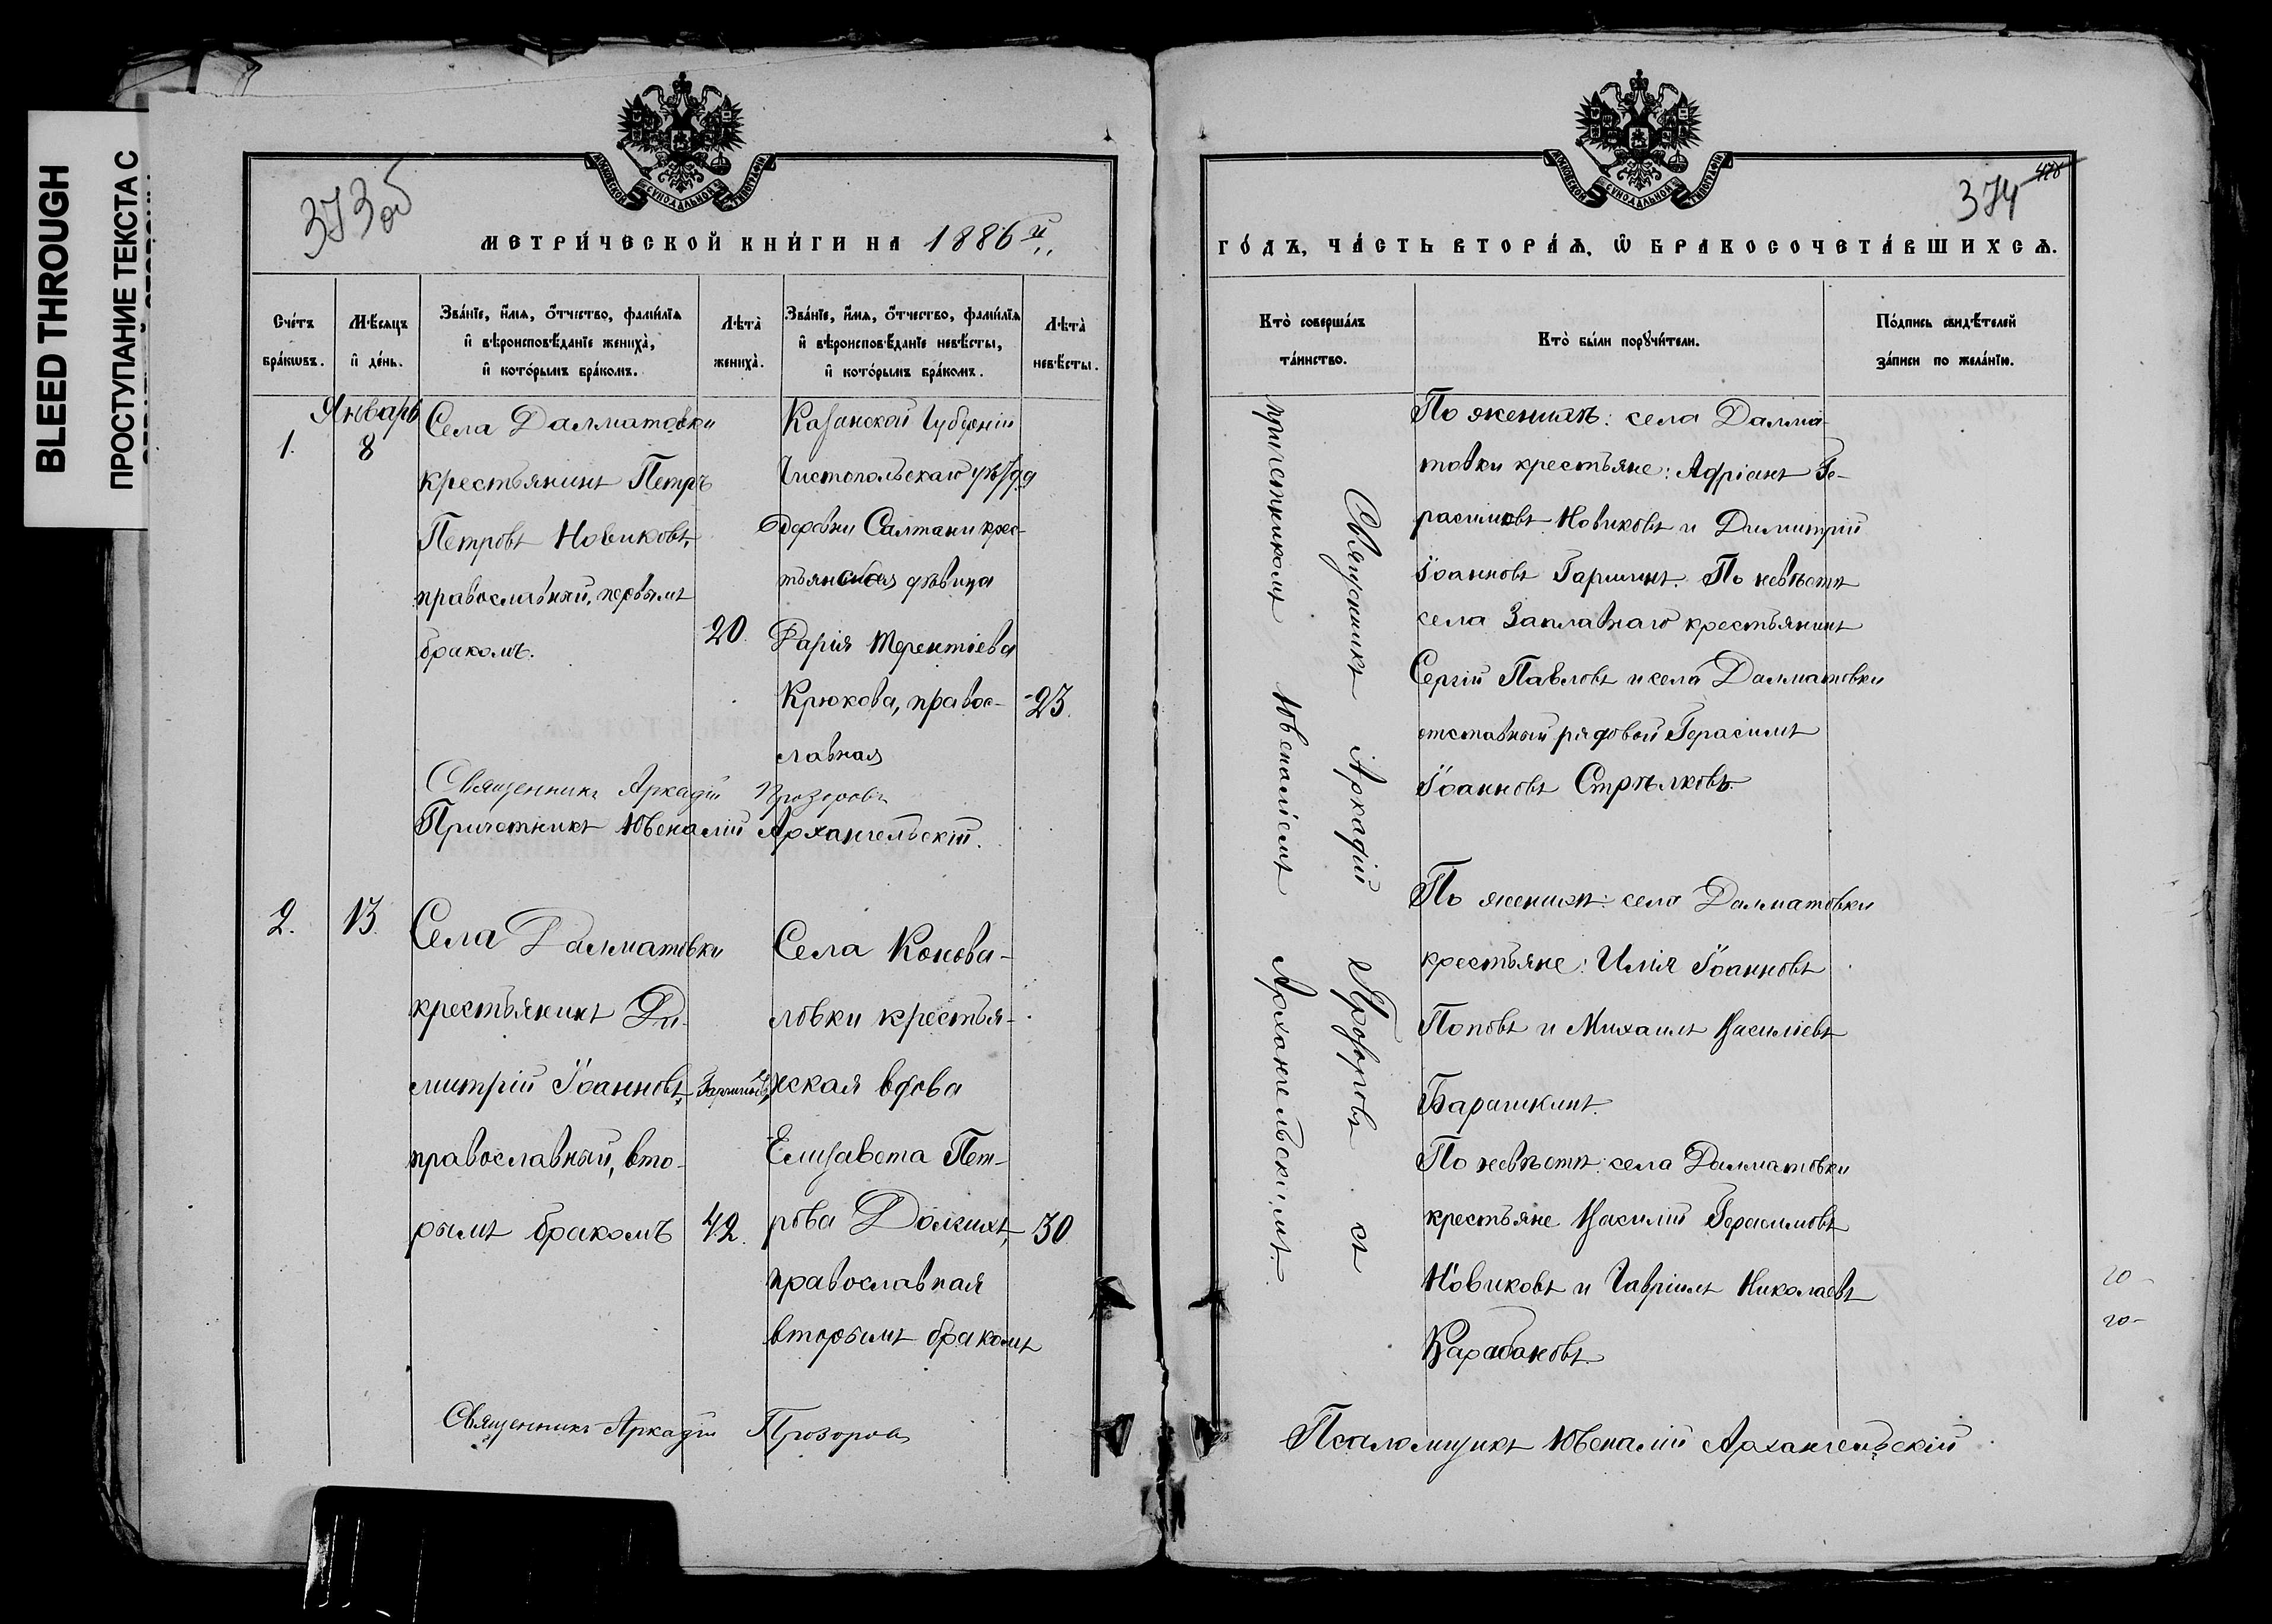 BLEED THROUGH
ПРОСТУПАНИЕ ТЕКСТА С
МОСКОВСКОЙ СѴНОДАЛЬНОЙ ТИПОГРАФІИ
373об
МЕТРИ́ЧЕСКОЙ КНИ́ГИ НА 1886 й
Сче́тъ бра́ковъ.
Мѣ́сяцъ и҆ де́нь.
Зва́нїе, и҆́мѧ, ѻ҆́тчество, фами́лїѧ и҆ вѣроисповѣ́данїе жениха̀, и҆ кото́рымъ бра́комъ.
Лѣта̀ жениха̀.
Зва́нїе, и҆́мѧ, ѻ҆́тчество, фами́лїѧ и҆ вѣроисповѣ́данїе невѣ́сты, и҆ кото́рымъ бра́комъ.
Лѣта̀ невѣ́сты.
Январь
1.
8
Села Далматовки
крестьянинъ Петръ
Петровъ Новиковъ,
православный, первымъ
бракомъ.
20.
Казанской Губерніи
Чистопольскаго уѣзда
деревни Салтани крес-
тьянская дѣвица
Дарія Терентіева
Крюкова, правос-
лавная
23.
Священникъ Аркадій Прозоровъ
Причетникъ Ювеналій Архангельскій.
2.
13.
Села Далматовки
крестьянинъ Ди-
митрій Іоанновъ Гаршинъ,
православный, вто-
рымъ бракомъ
42.
Села Конова-
ловки крестья-
нская вдова
Елизавета Пет-
рова Долгихъ,
православная
вторымъ бракомъ
30
Священникъ Аркадій Прозоровъ
МОСКОВСКОЙ СѴНОДАЛЬНОЙ ТИПОГРАФІИ
374
478
ГО́ДЪ, ЧА́СТЬ ВТОРА́Ѧ, Ѽ БРАКОСОЧЕТА́ВШИХСѦ.
Кто̀ соверша́лъ та́инство.
Кто̀ бы́ли порꙋчи́тели.
По́дпись свидѣ́телей за́писи по жела́нїю.
Священникъ Аркадій Прозоровъ съ
причетникомъ Ювеналіемъ Архангельскимъ.
По женихѣ: села Далма-
товки крестьяне: Адріанъ Ге-
расимовъ Новиковъ и Димитрій
Іоанновъ Гаршинъ. По невѣстѣ
села Заплавнаго крестьянинъ
Сергій Павловъ и села Далматовки
отставный рядовой Герасимъ
Іоанновъ Стрѣлковъ.
По женихѣ: села Далматовки
крестьяне: Илія Іоанновъ
Поповъ и Михаилъ Василіевъ
Барашкинъ.
По невѣстѣ: села Далматовки
крестьяне Василій Герасимовъ
Новиковъ и Гавріилъ Николаевъ
Карабановъ.
20 -
20 -
Псаломщикъ Ювеналій Архангельскій